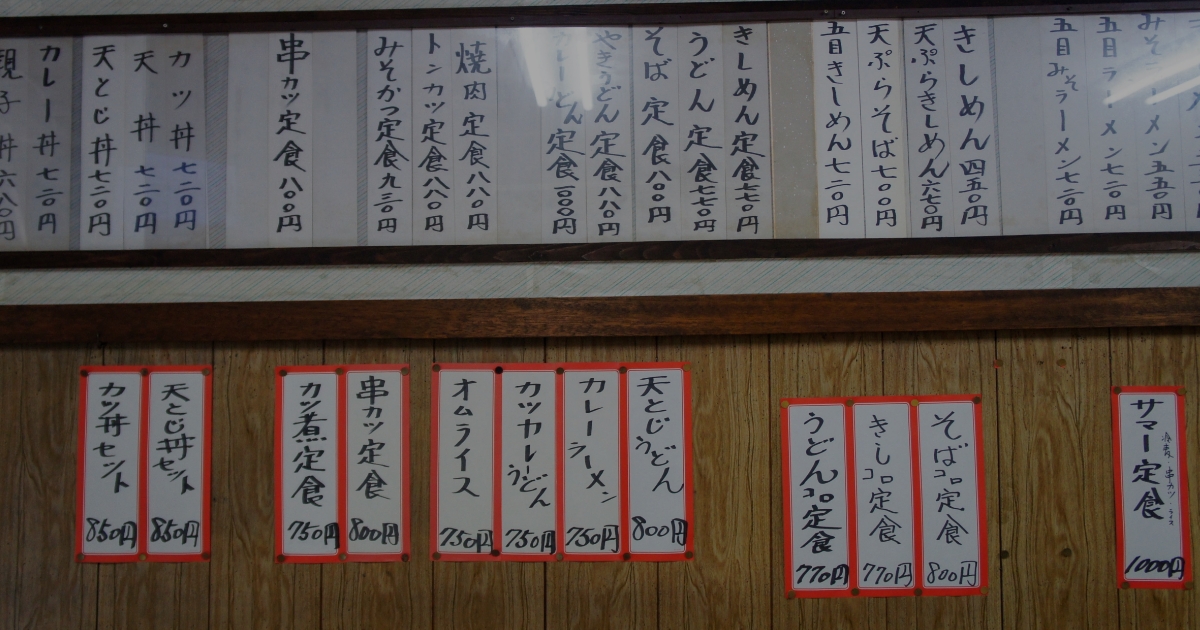 みそラーメン五五０円
五目ラーメン七二０円
五目みそラーメン七二０円
きしめん四五０円
天ぷらきしめん六七０円
天ぷらそば七００円
五目きしめん七二０円
きしめん定食七七０円
うどん定食七七０円
そば定食八００円
やきうどん定食八八０円
カレーうどん定食一０００円
焼肉定食八八０円
トンカツ定食八八０円
みそかつ定食九三０円
串カツ定食八００円
カツ丼七二０円
天丼七二０円
天とじ丼七二０円
カレー丼七二０円
親子丼六八０円
サマー定食
1000円
そばコロ定食
800円
きしコロ定食
770円
うどんコロ定食
770円
天とじうどん
800円
カレーラーメン
750円
カツカレーうどん
750円
オムライス
750円
串カツ定食
800円
カツ煮定食
750円
天とじ丼セット
850円
カツ丼セット
850円